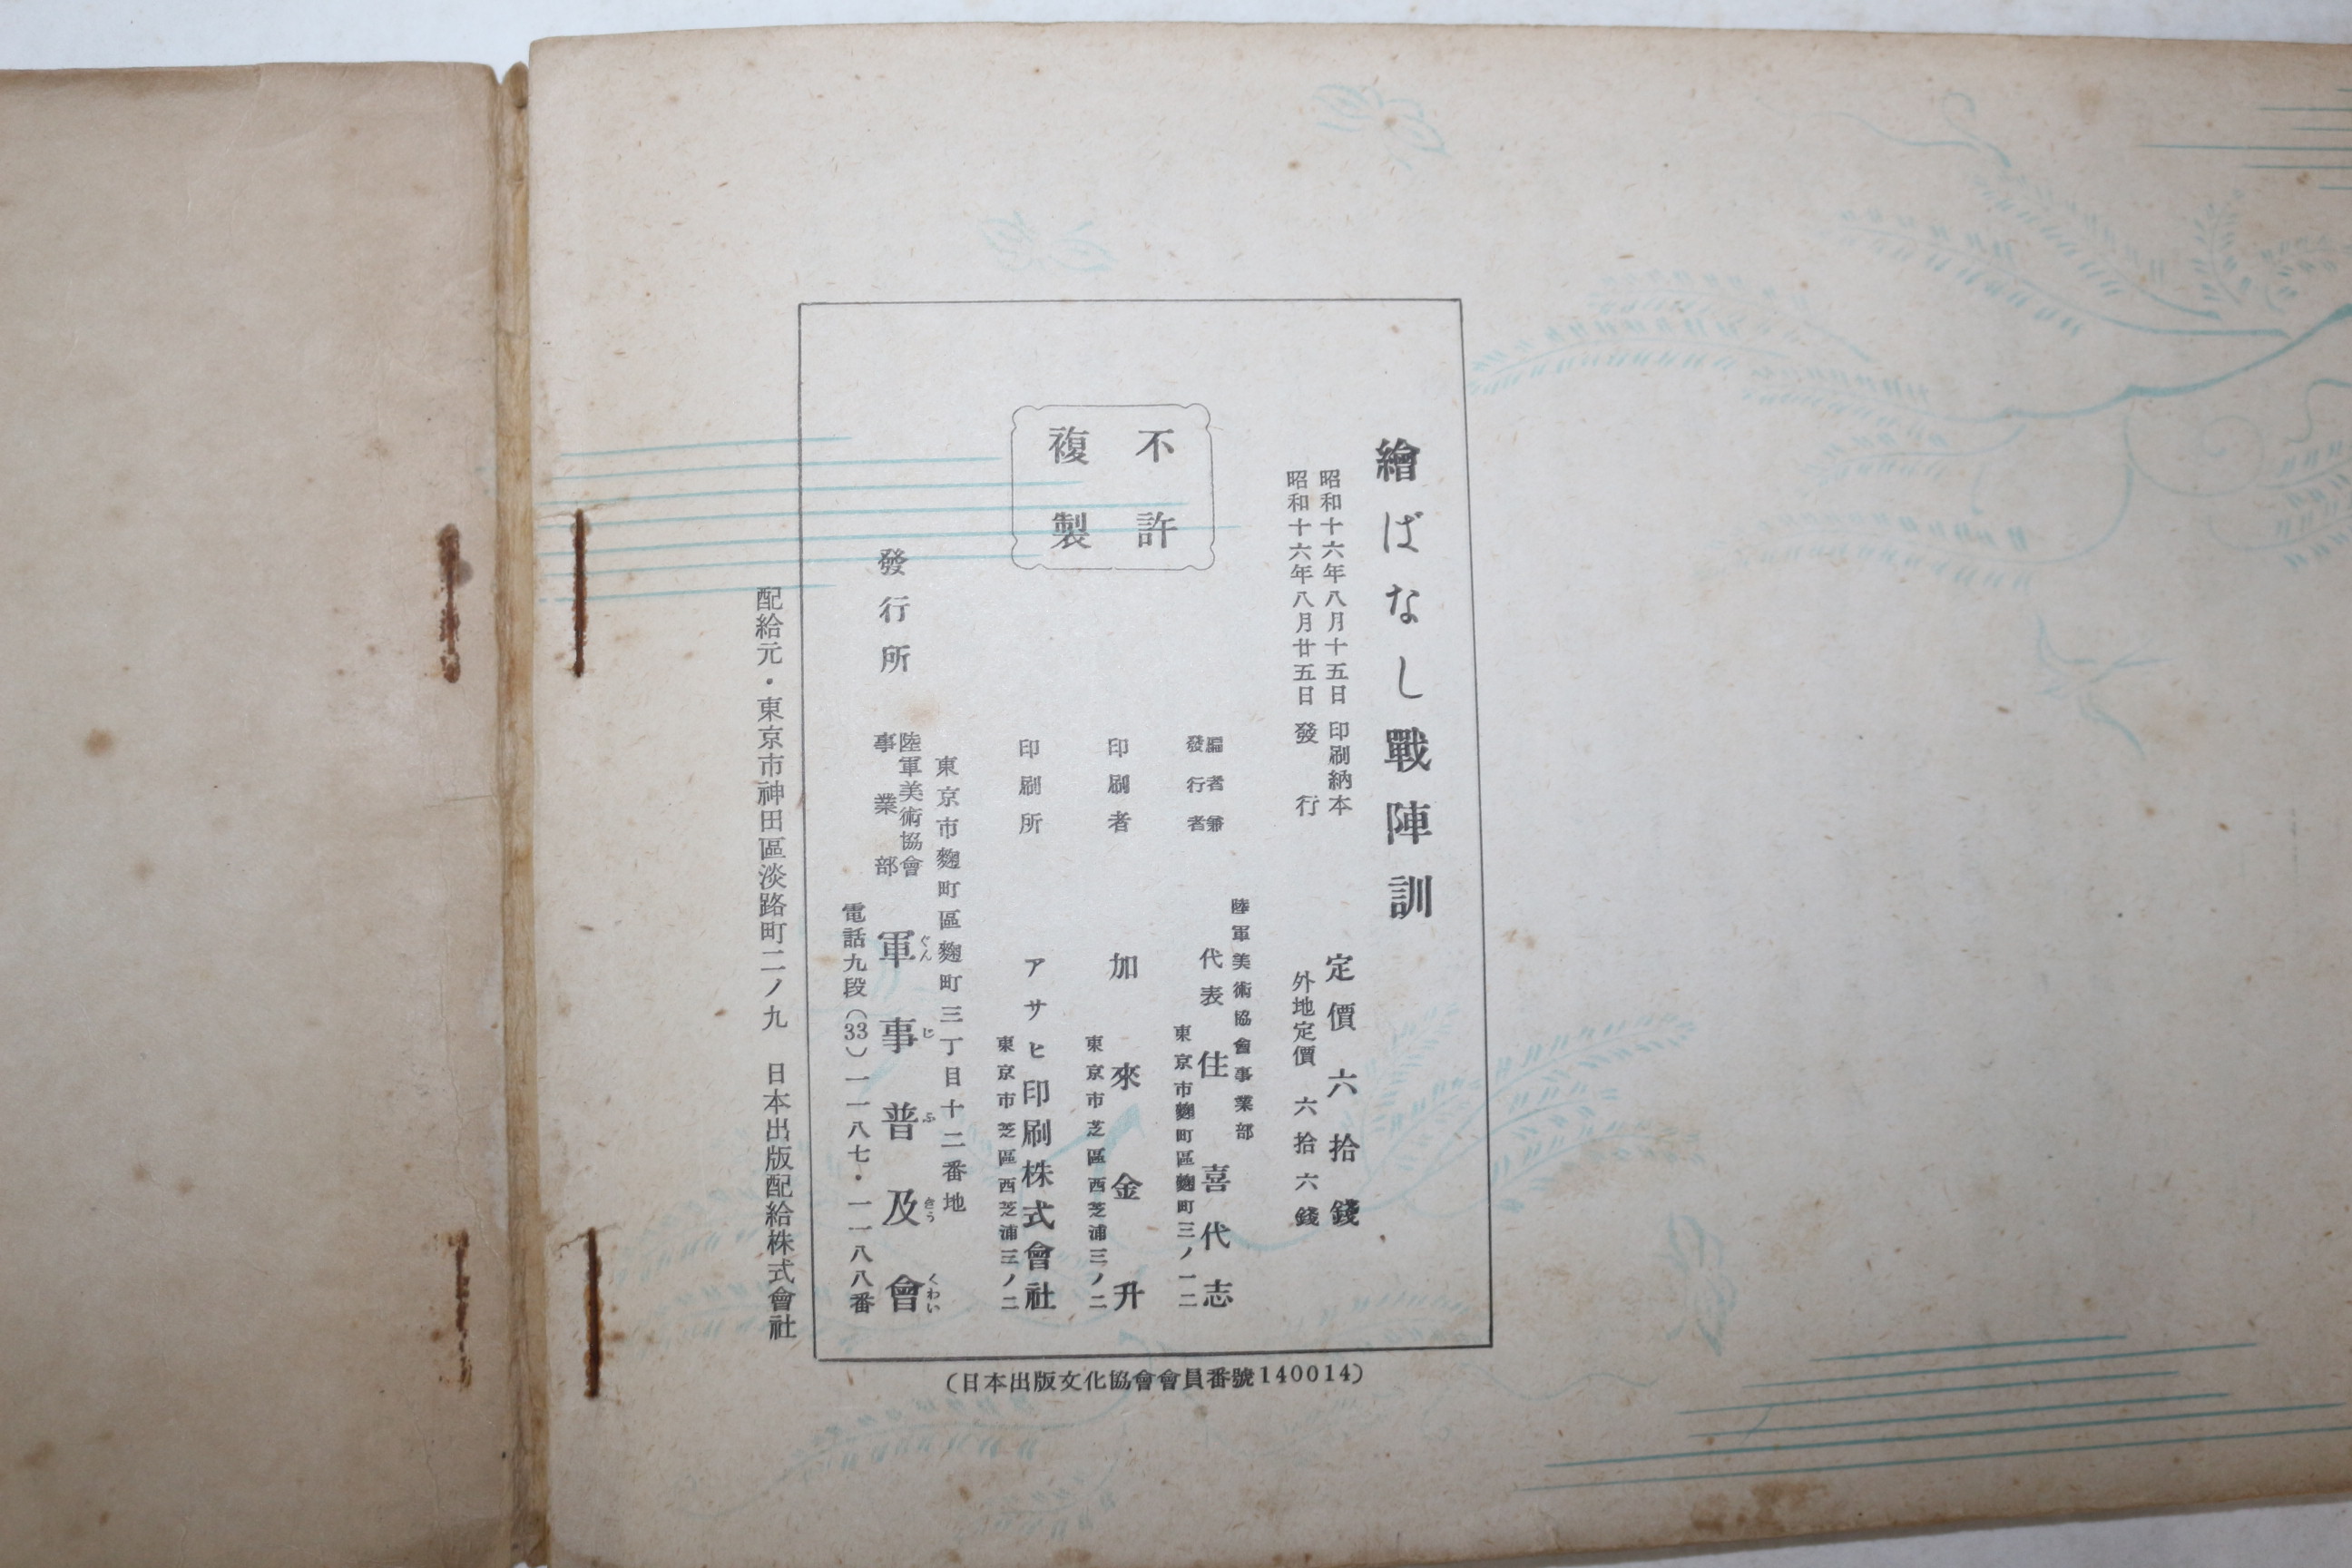 繪ばなし戰陣訓
昭和十六年八月十五日 印刷納本
昭和十六年八月廿五日 發行
定價 六拾錢
外地定價 六拾六錢
不許
複製
編者兼
發行者
陸軍美術協會事業部
代表 住喜代志
東京市麴町區麴町三ノ一二
印刷者 加來金升
東京市芝區西芝浦三ノ二
印刷所 アサヒ印刷株式會社
東京市芝區西芝浦三ノ二
東京市麴町區麴町三丁目十二番地
發行所
陸軍美術協會
事業部
ぐんじふきうくわい
軍事普及會
電話九段(33)一一八七・一一八八番
配給元・東京市神田區淡路町二ノ九 日本出版配給株式會社
(日本出版文化協會會員番號140014)